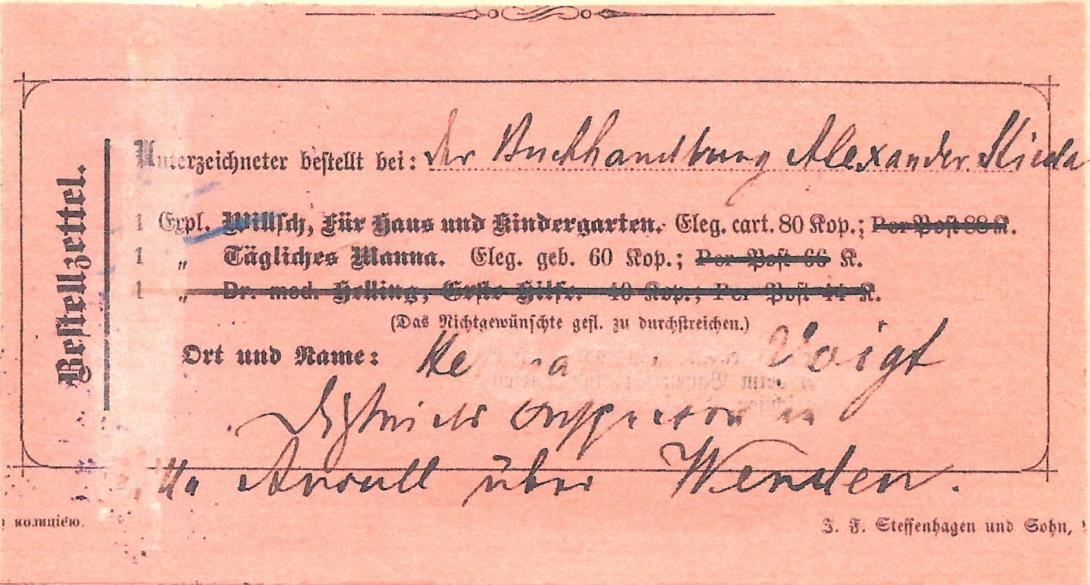 Bestellzettel.
Unterzeichneter bestellt bei: der Buchhandlung Alexander Stieda
1 Expl. Willsch, Für Haus und Kindergarten. Eleg. cart. 80 Kop.; Per Post 88 K.
1 „ Tägliches Manna. Eleg. geb. 60 Kop.; Per Post 66 K.
1 „ Dr. med. Helling, Erste Hilfe. 40 Kop.; Per Post 44 K.
(Das Nichtgewünschte gefl. zu durchstreichen.)
Ort und Name: Voigt
über Wenden.
полиціею.
J. F. Steffenhagen und Sohn,